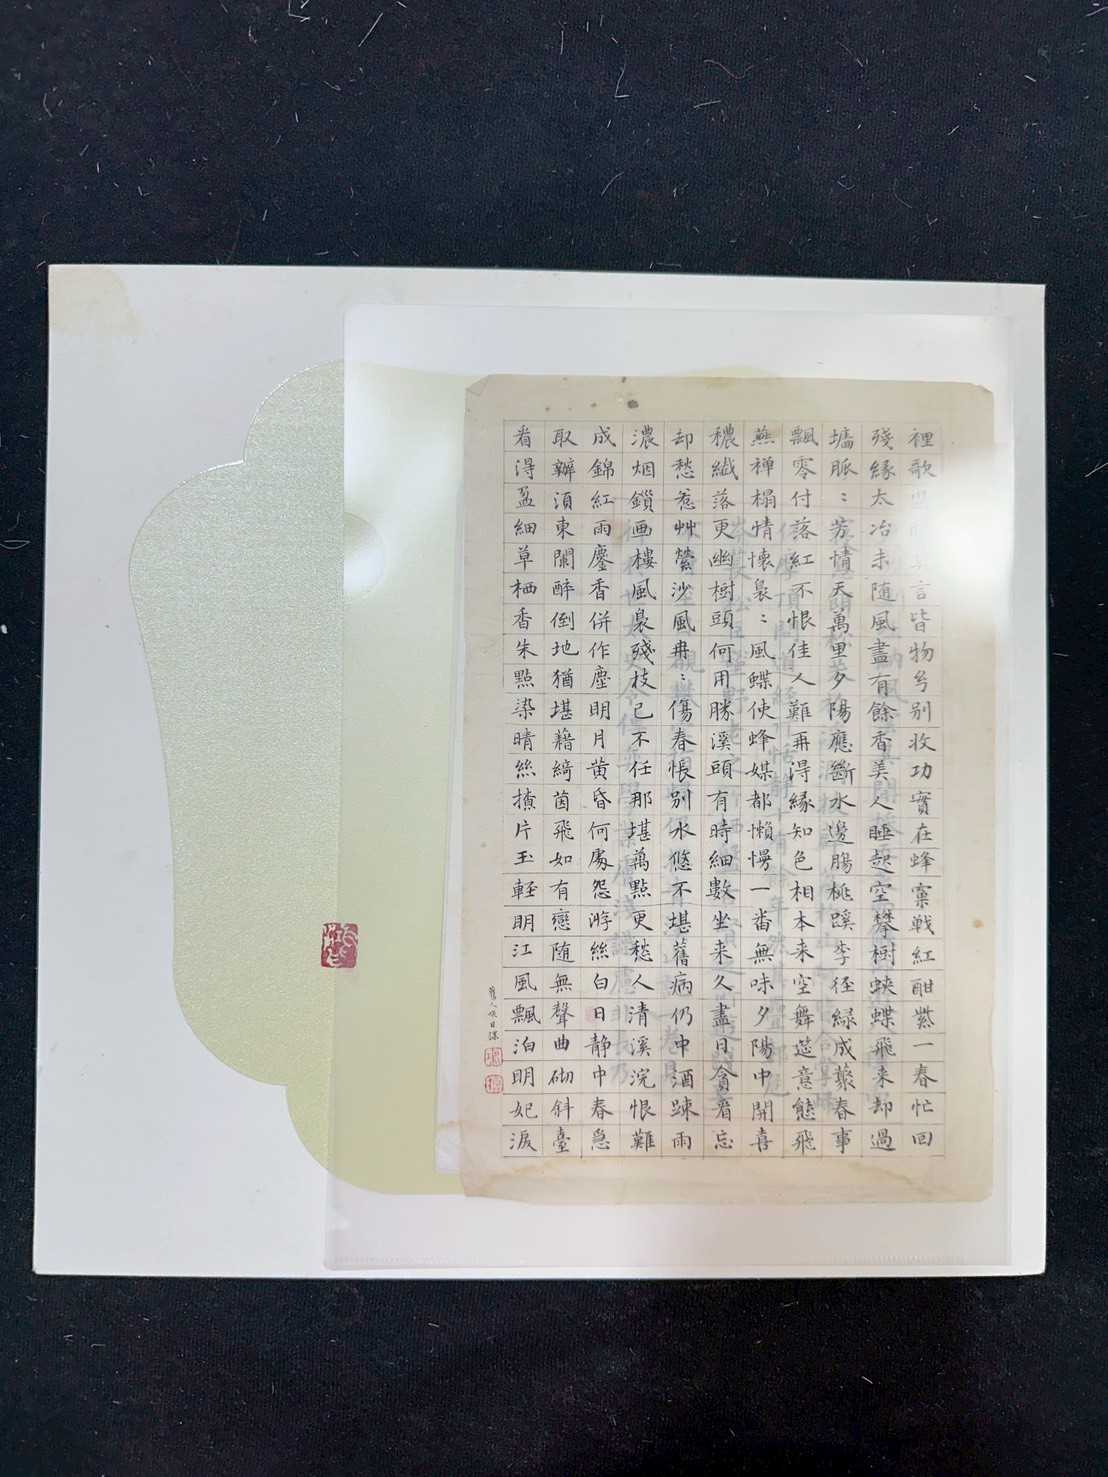 裡歌言皆物兮别收功實在蜂窠戰紅酣紫一春忙回
殘緣太冶未随風盡有餘香美人睡起空攀樹蛺蝶飛来却過
墻脈〻芳情天萬里夕陽應斷水邊腸桃蹊李徑緑成藂春事
飄零付落紅不恨佳人難再得緣知色相本来空舞筵意態飛
燕禅榻情懷裊〻風蝶使蜂媒都懶慢一番無味夕陽中開喜
穠纖落更幽樹頭何用勝溪頭有時細數坐来久盡日貪看忘
却愁惹艸縈沙風冉〻傷春悵别水悠不堪舊病仍中酒踈雨
濃烟鎖画樓風裊殘枝已不任那堪萬點更愁人清溪浣恨難
成錦紅雨鏖香併作塵明月黄昏何處怨游絲白日静中春急
取辦湏東閣醉倒地猶堪藉綺茵飛如有戀随無聲曲砌斜臺
看淂盈細草栖香朱點染晴絲撩片玉輕明江風飄泊明妃淚